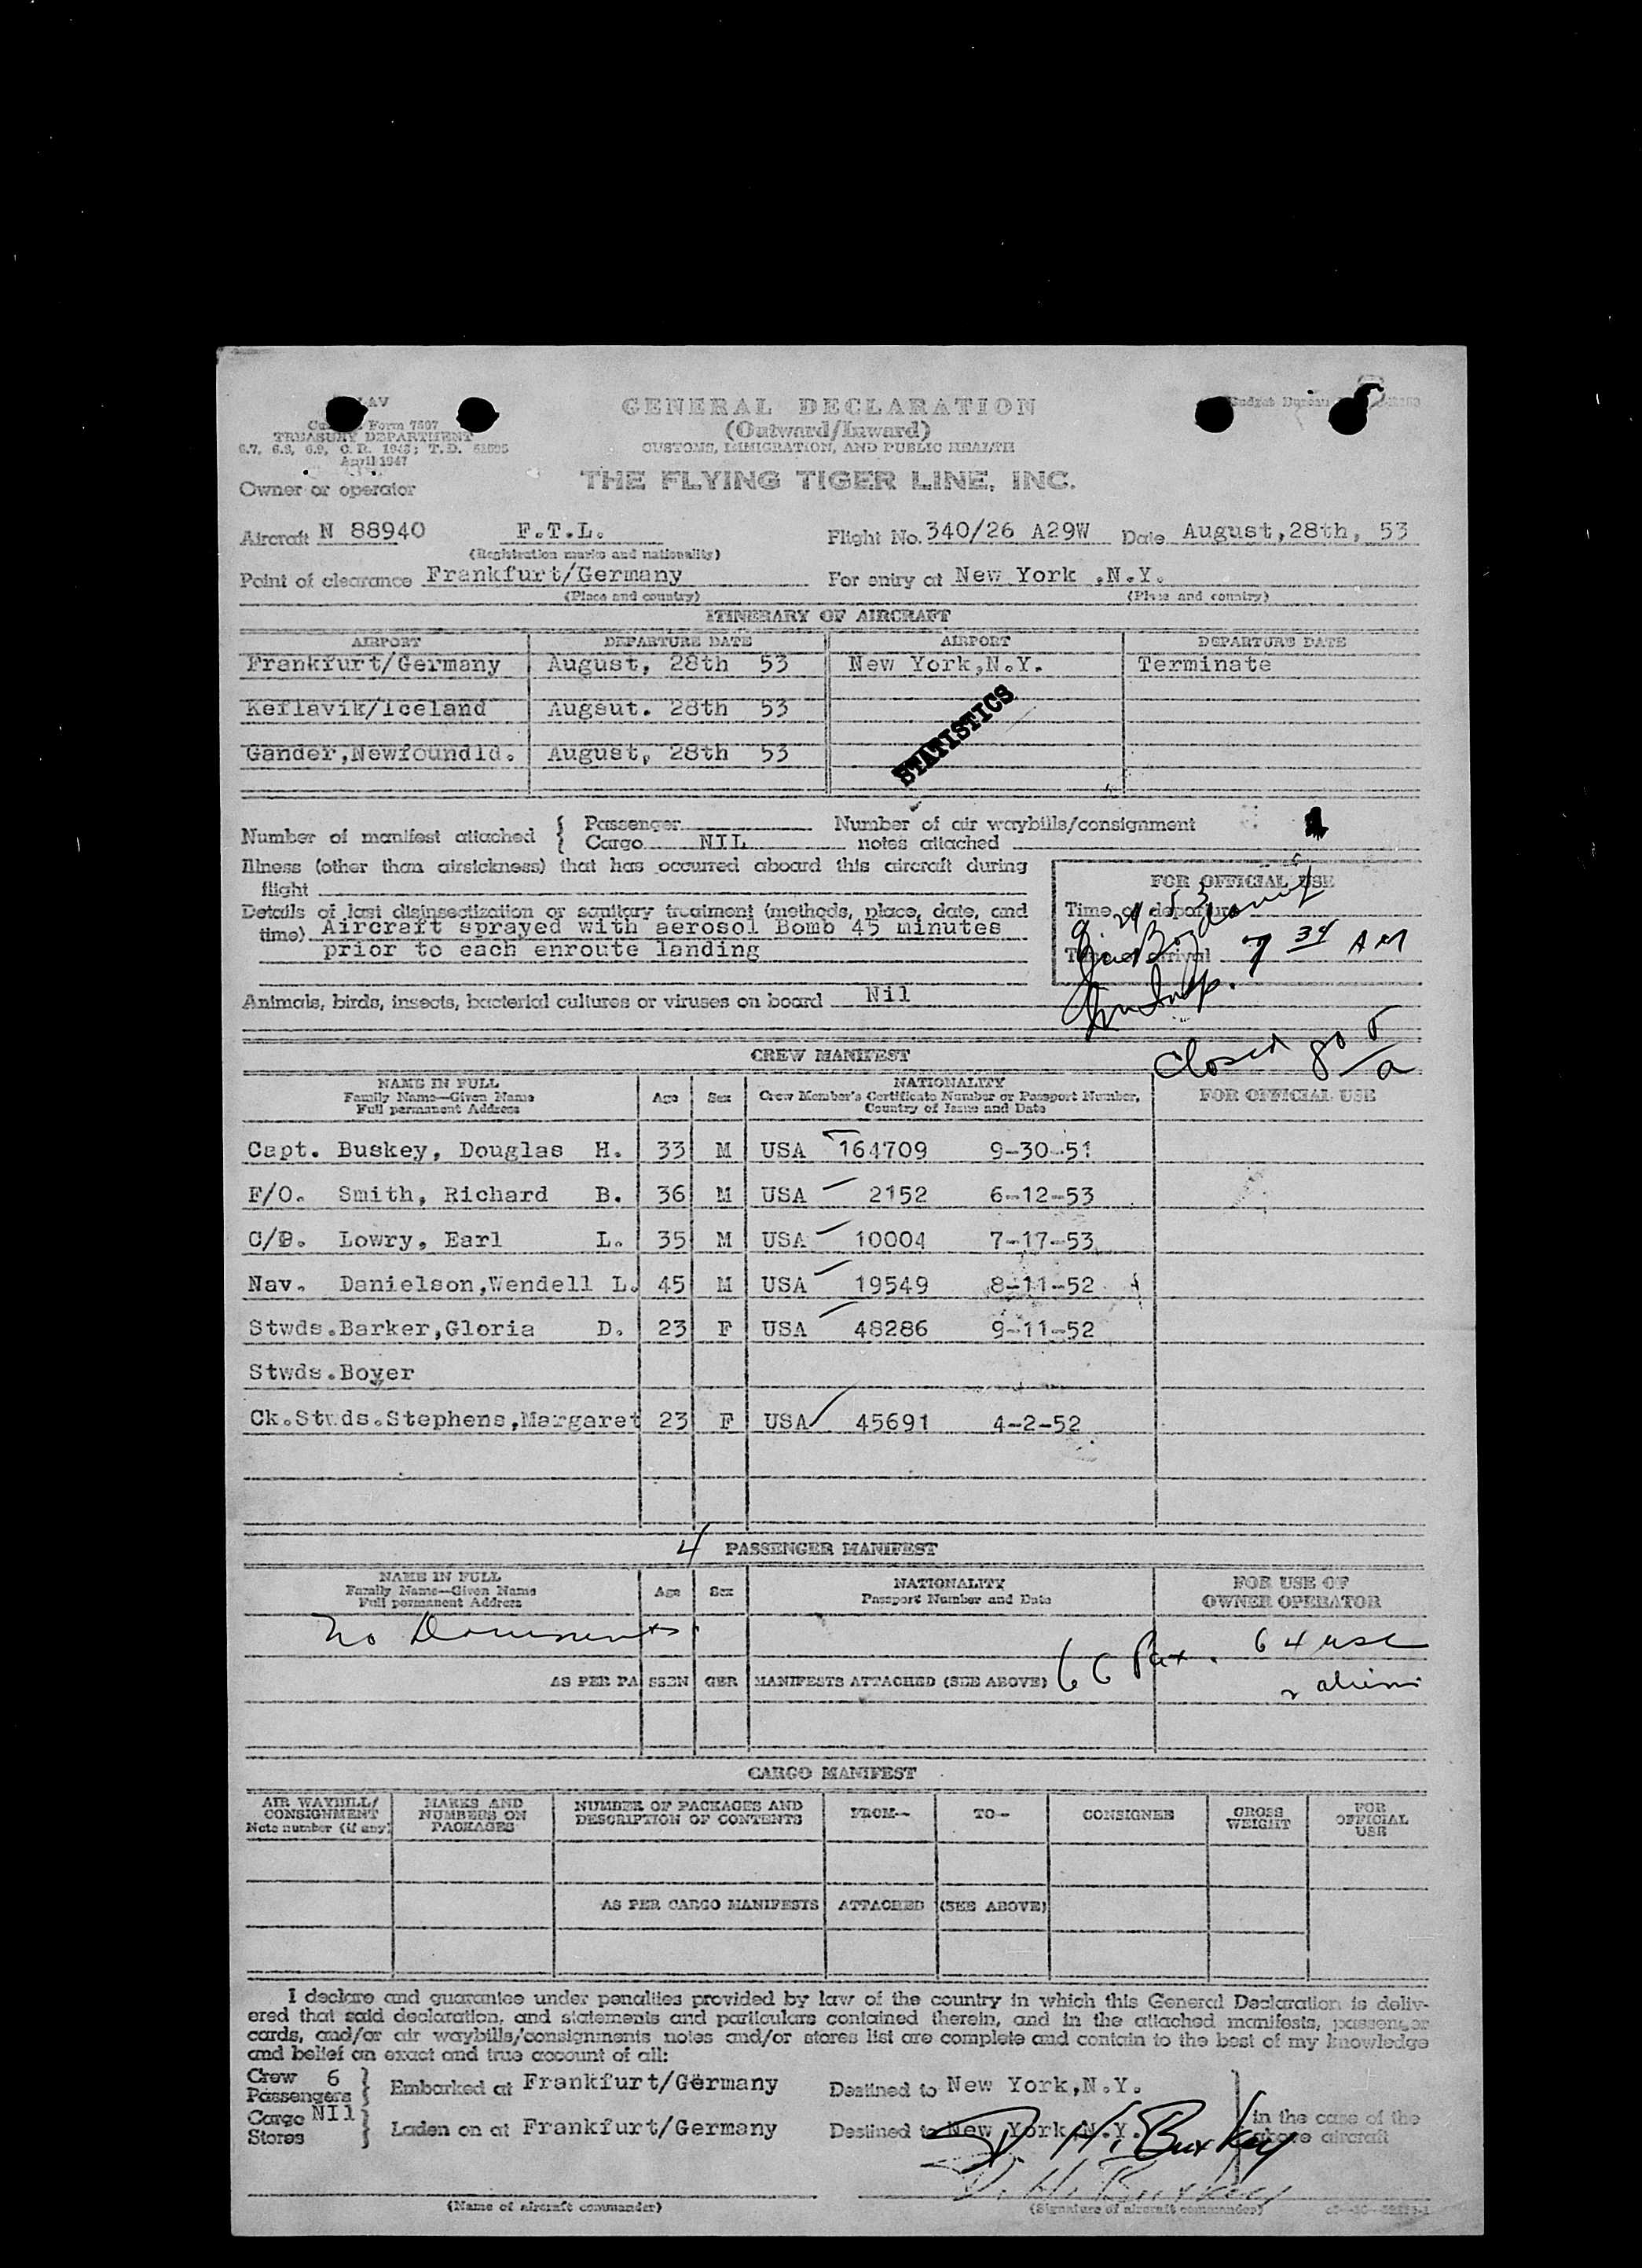 GENERAL DECLARATION
(Outward/Inward)
CUSTOMS, IMMIGRATION, AND PUBLIC HEALTH
Form 7507
TREASURY DEPARTMENT
April 1947
THE FLYING TIGER LINE, INC.
Owner or operator
Aircraft N 88940 F.T.L. Flight No. 340/26 A29W Date August,28th, 53
(Registration marks and nationality)
Point of clearance Frankfurt/Germany For entry at New York .N.Y.
(Place and country) (Place and country)
ITINERARY OF AIRCRAFT
AIRPORT DEPARTURE DATE AIRPORT DEPARTURE DATE
Frankfurt/Germany August, 28th 53 New York,N.Y. Terminate
Keflavik/Iceland Augsut. 28th 53
Gander,Newfoundld. August, 28th 53
STATISTICS
Number of manifest attached { Passenger Number of air waybills/consignment
Cargo NIL notes attached
Illness (other than airsickness) that has occurred aboard this aircraft during
flight
FOR OFFICIAL USE
Details of last disinsectization or sanitary treatment (methods, place, date, and
Time of departure
time) Aircraft sprayed with aerosol Bomb 45 minutes
prior to each enroute landing
7 34 AM
Animals, birds, insects, bacterial cultures or viruses on board Nil
Closed
CREW MANIFEST
NAME IN FULL
Family Name—Given Name
Full permanent Address
Age Sex
NATIONALITY
Crew Member's Certificate Number or Passport Number,
Country of Issue and Date
FOR OFFICIAL USE
Capt. Buskey, Douglas H. 33 M USA 164709 9-30-51
F/O. Smith, Richard B. 36 M USA 2152 6-12-53
Lowry, Earl L. 35 M USA 10004 7-17-53
Nav. Danielson,Wendell L. 45 M USA 19549 8-11-52
Stwds.Barker,Gloria D. 23 F USA 48286 9-11-52
Stwds.Boyer
Ck.Stwds.Stephens,Margaret 23 F USA 45691 4-2-52
4 PASSENGER MANIFEST
NAME IN FULL
Family Name—Given Name
Full permanent Address
Age Sex
NATIONALITY
Passport Number and Date
FOR USE OF
OWNER OPERATOR
No Documents
66 Pax. 64 usc
AS PER PASSENGER MANIFESTS ATTACHED (SEE ABOVE)
2 aliens
CARGO MANIFEST
AIR WAYBILL/
CONSIGNMENT
Note number (if any)
MARKS AND
NUMBERS ON
PACKAGES
NUMBER OF PACKAGES AND
DESCRIPTION OF CONTENTS
FROM— TO— CONSIGNEE
GROSS
WEIGHT
FOR
OFFICIAL
USE
AS PER CARGO MANIFESTS ATTACHED (SEE ABOVE)
I declare and guarantee under penalties provided by law of the country in which this General Declaration is deliv-
ered that said declaration, and statements and particulars contained therein, and in the attached manifests, passenger
cards, and/or air waybills/consignments notes and/or stores list are complete and contain to the best of my knowledge
and belief an exact and true account of all:
Crew 6
Passengers } Embarked at Frankfurt/Germany Destined to New York,N.Y.
Cargo NIl
Stores } Laden on at Frankfurt/Germany Destined to New York,N.Y.
in the case of the
above aircraft
D. H. Buskey
D. H. Buskey
(Name of aircraft commander) (Signature of aircraft commander)